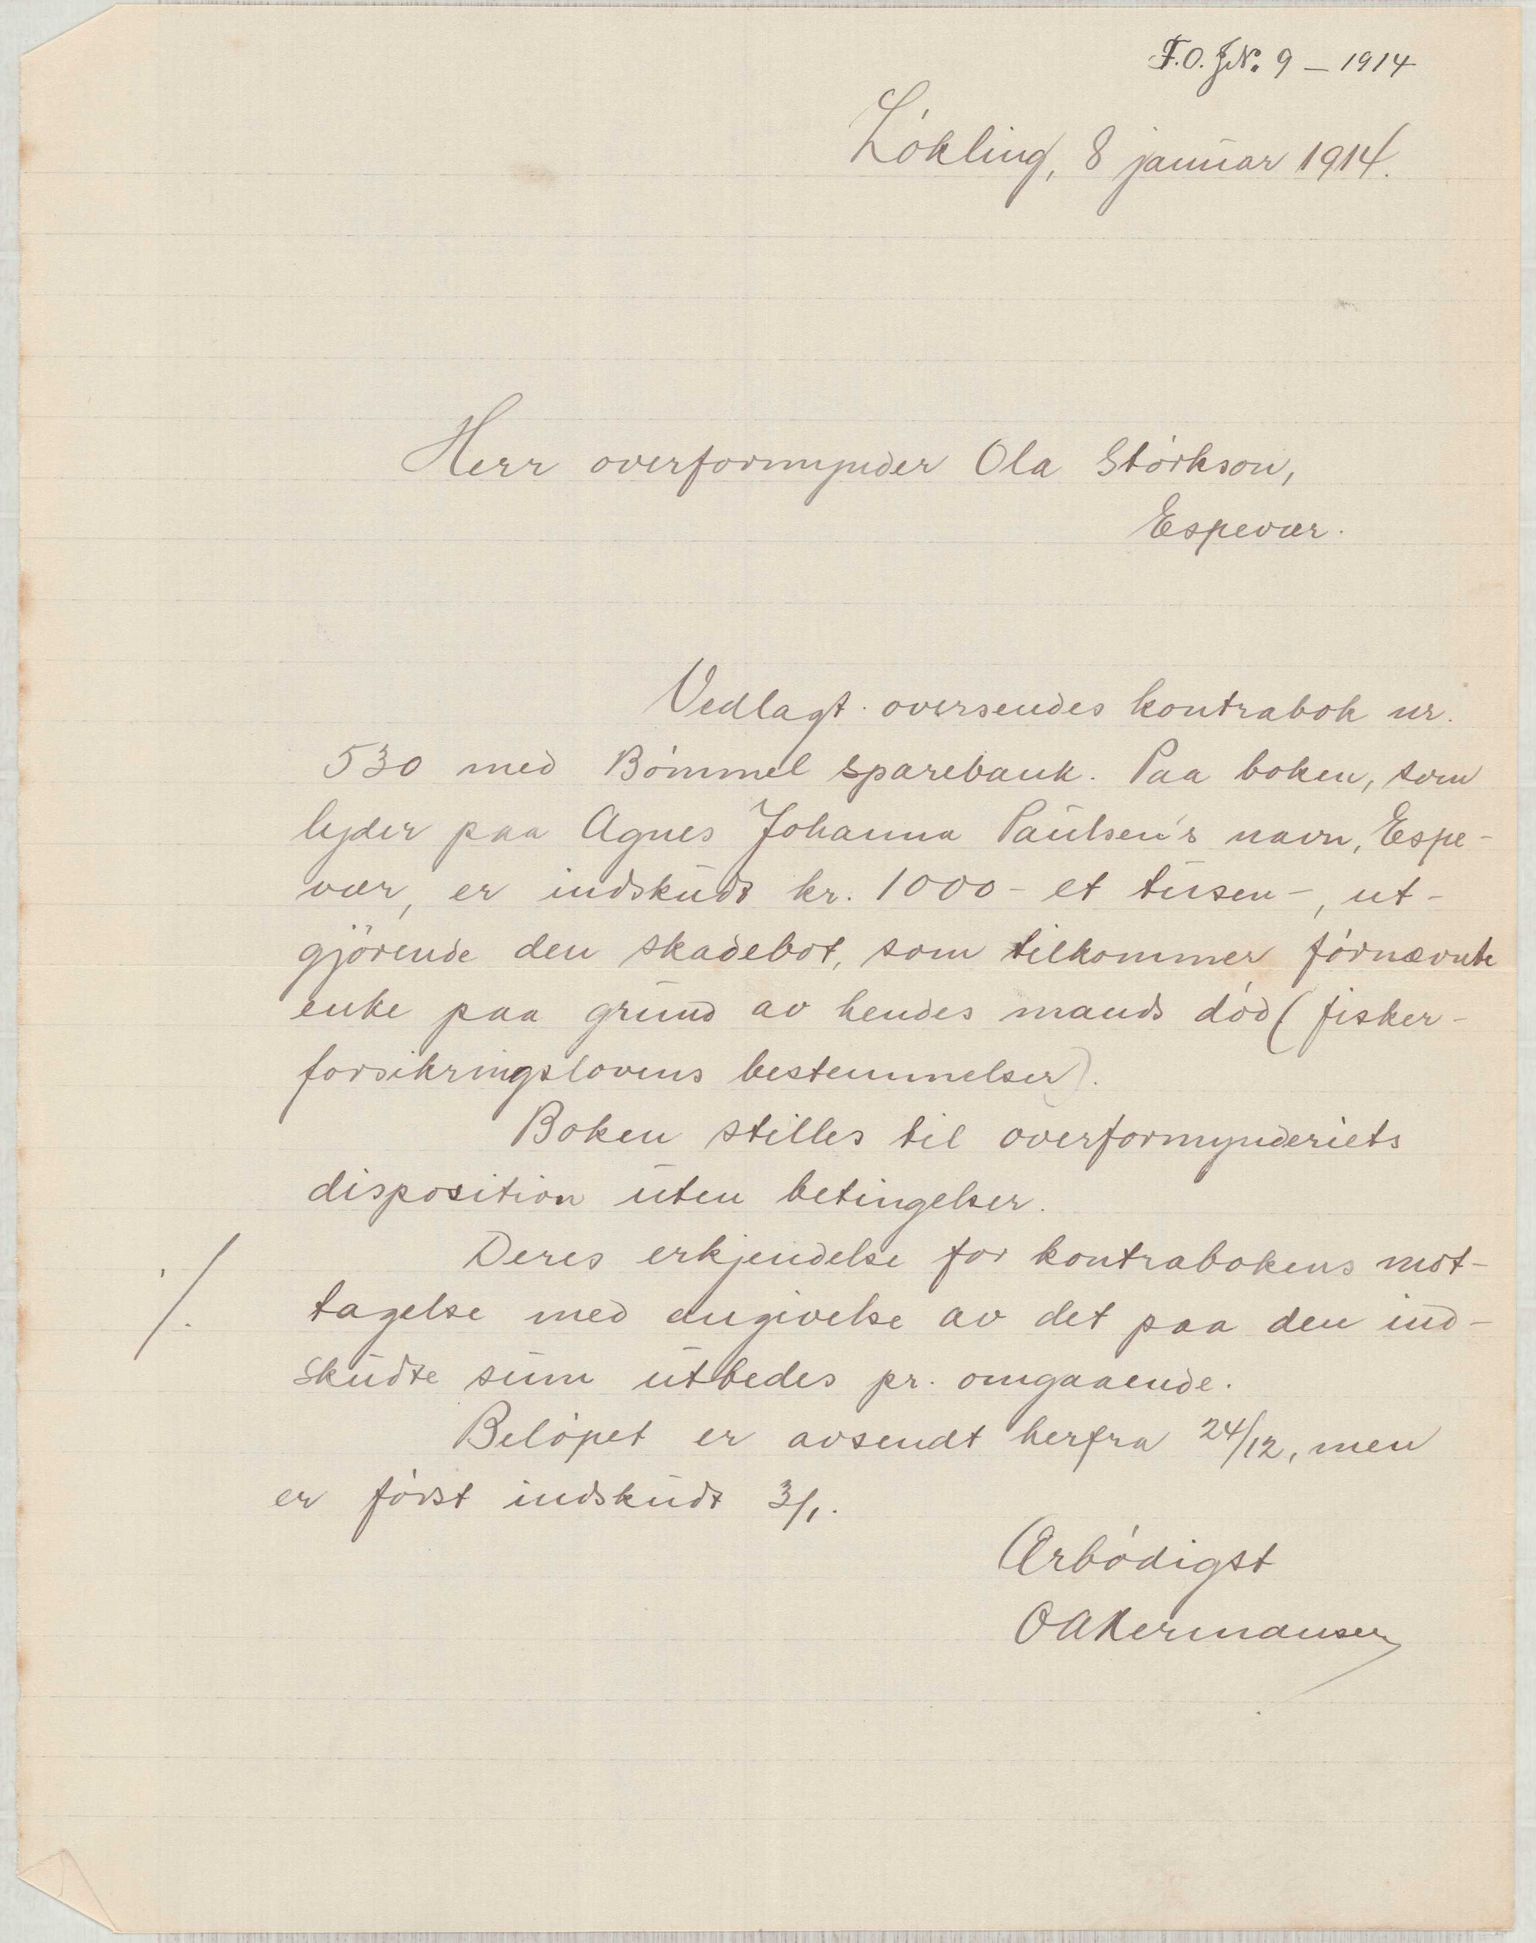 F.O. J.No. 9 – 1914
Løkling, 8 januar 1914.
Herr overformynder Ola Størkson,
Espevær.
Vedlagt oversendes kontrabok nr.
530 med Bømmel sparebank. Paa boken, som
lyder paa Agnes Johanna Paulsen's navn, Espe-
vær, er indskudt kr. 1000 - et tusen -, ut-
gjörende den skadebot, som tilkommer førnævnte
enke paa grund av hendes mands död (fisker-
forsikringslovens bestemmelser).
Boken stilles til overformynderiets
disposition uten betingelser.
./. Deres erkjendelse for kontrabokens mot-
tagelse med angivelse av det paa den ind-
skudte sum utbedes pr. omgaaende.
Beløpet er avsendt herfra 24/12, men
er først indskudt 3/1.
Ærbødigst
O A Hermansen